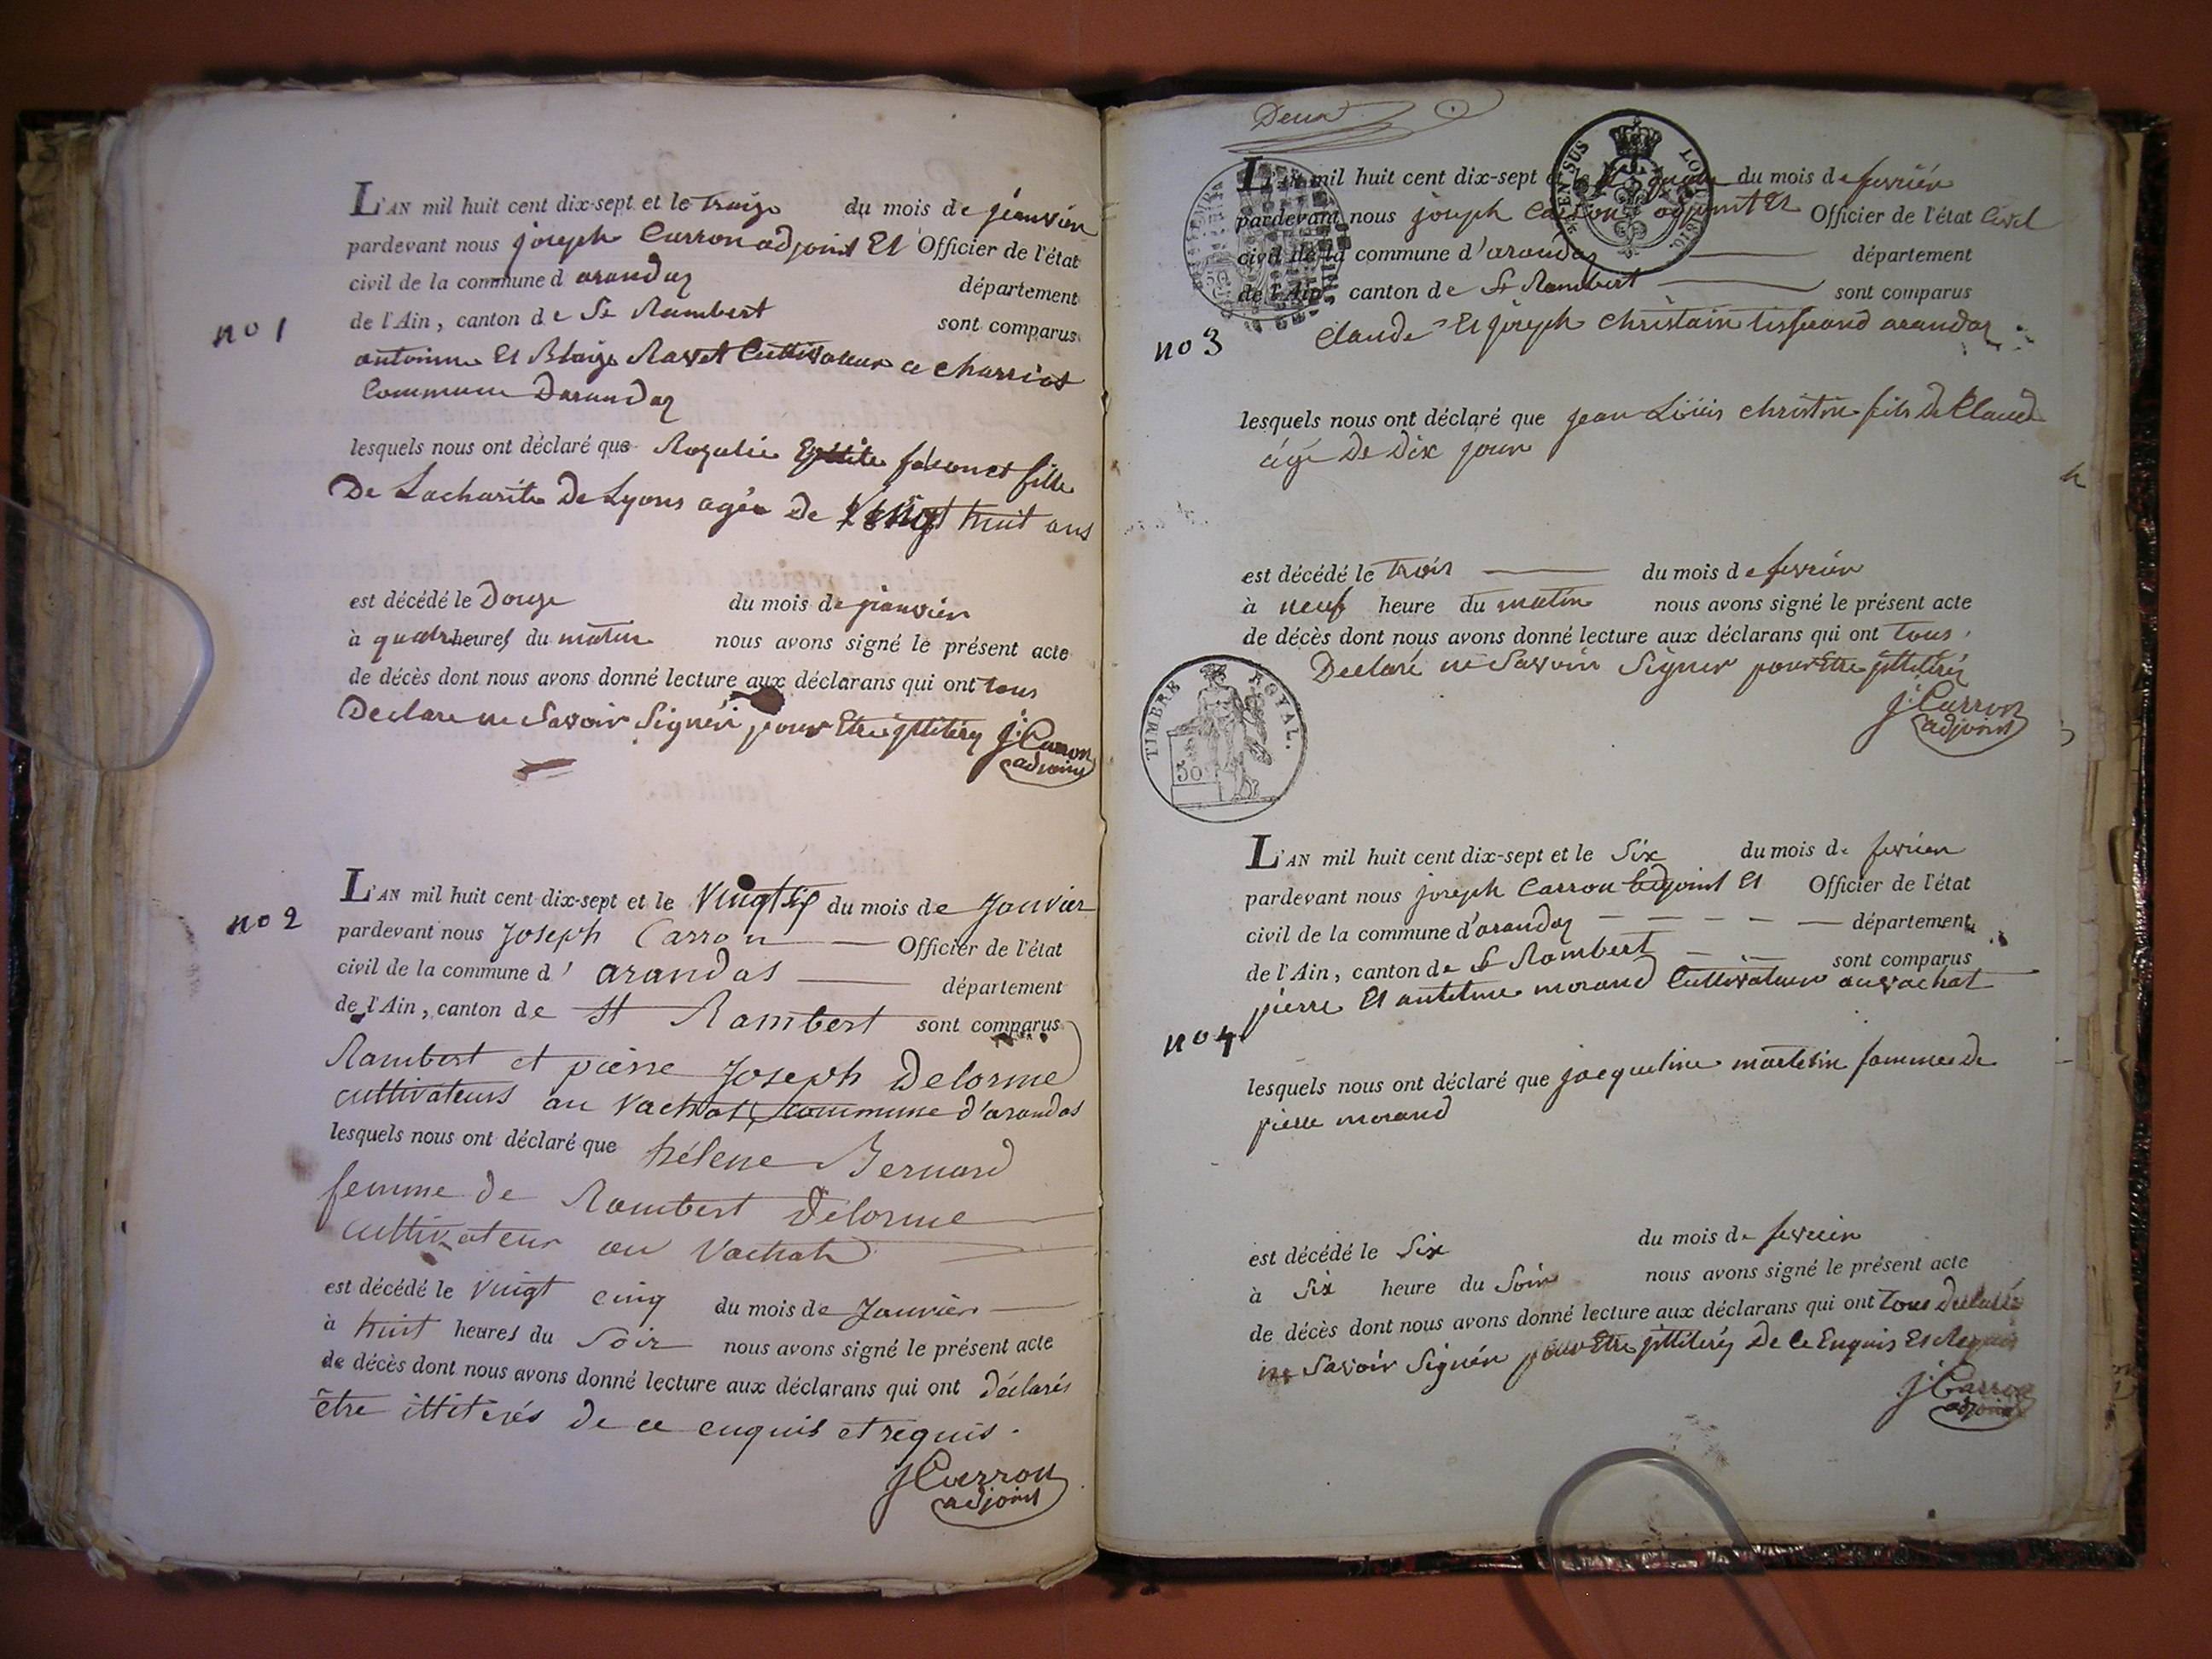 L'AN mil huit cent dix-sept et le treize du mois de jeanvier
pardevant nous joseph Carron adjoint Et Officier de l'état
civil de la commune d arandaz département
de l'Ain, canton de St Rambert sont comparus
no 1
antoinne Et Blaize Ravet Cultivateur a Charriot
Commune Darandaz
lesquels nous ont déclaré que Rozalie fille
De Lacharite De Lyons agée De Vingt huit ans
est décédé le Douze du mois de jeanvier
à quatre heures du matin nous avons signé le présent acte
de décès dont nous avons donné lecture aux déclarans qui ont tous
Declare ne Savoir Signér pour Etre jllitéré J. Carron
adjoint
L'AN mil huit cent dix-sept et le Vingt six du mois de Janvier
no 2
pardevant nous Joseph Carron Officier de l'état
civil de la commune d' arandas département
de l'Ain, canton de St Rambert sont comparus
Rambert et pierre Joseph Delorme
cultivateurs au Vachat, commune d'arandas
lesquels nous ont déclaré que hélene Bernard
femme de Rambert Delorme
cultivateur au Vachat
est décédé le Vingt cinq du mois de Janvier
à huit heures du Soir nous avons signé le présent acte
de décès dont nous avons donné lecture aux déclarans qui ont déclarés
être illiterés de ce enquis et requis.
J Carron
adjoint
Deux
L'AN mil huit cent dix-sept du mois de fevrier
pardevant nous joseph Carron adjoint Et Officier de l'état Civil
civil de la commune d'arandaz département
de l'Ain, canton de St Rambert sont comparus
no 3
Claude Et joseph Christain tisserand arandaz
lesquels nous ont déclaré que jean Loüis christin fils De Claude
agé De Dix jour
est décédé le trois du mois de fevrier
à neuf heure du matin nous avons signé le présent acte
de décès dont nous avons donné lecture aux déclarans qui ont tous
Declaré ne Savoir Signer pour Etre jllitéré
J. Carron
adjoint
TIMBRE ROYAL.
50
L'AN mil huit cent dix-sept et le Six du mois de fevrier
pardevant nous joseph Carron adjoint Et Officier de l'état
civil de la commune d'arandaz département
de l'Ain, canton de St Rambert sont comparus
pierre Et antelme morand Cultivateur au vachat
no 4
lesquels nous ont déclaré que jacqueline martelin famme de
pierre morand
est décédé le Six du mois de fevrier
à Six heure du Soir nous avons signé le présent acte
de décès dont nous avons donné lecture aux déclarans qui ont tous declaré
ne Savoir Signér pour Etre jllitéré De Ce Enquis Et Requis
J. Carron
adjoint